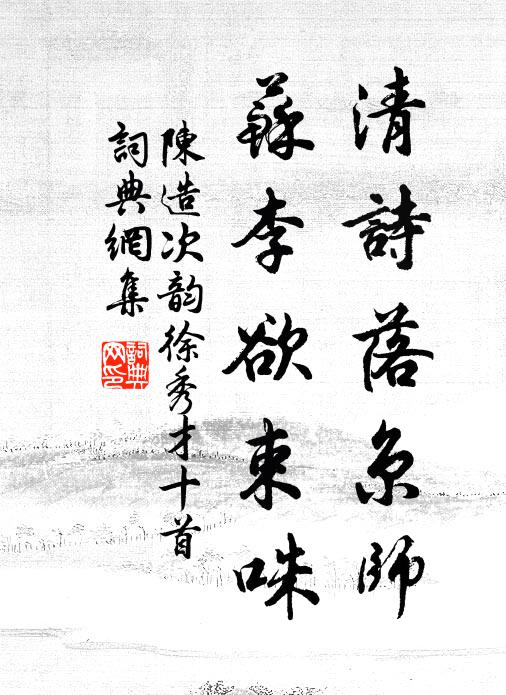 清詩落京師
蘇李欲束咮
陳造次韵徐秀才十首
詞典網集
詞典网印